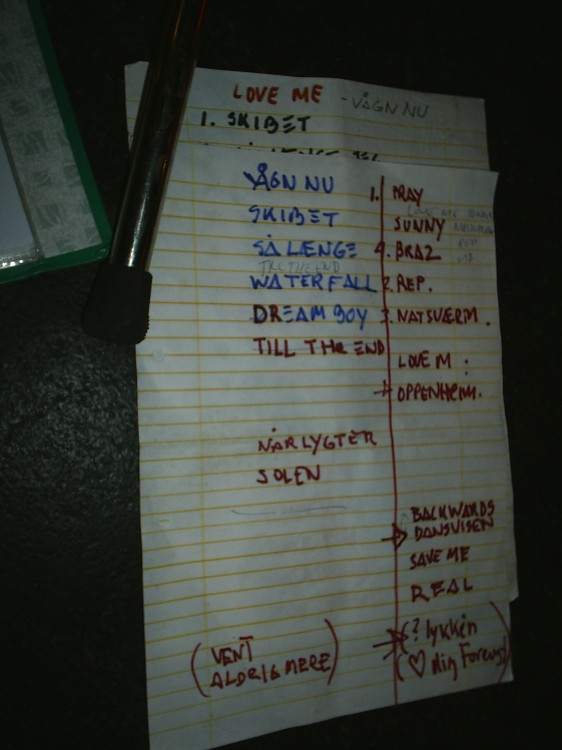 LOVE ME - VÅGN NU
1. SKIBET
VÅGN NU
SKIBET
SÅ LÆNGE
TILL THE END
WATERFALL
DREAM BOY
TILL THE END
NÅR LYGTER
SOLEN
(VENT
ALDRIG MERE)
1. PRAY
SUNNY
4. BRAZ
2. REP.
3. NATSVÆRM.
LOVE M:
OPPENHEIM.
BACKWARDS
DANSVISEN
SAVE ME
REAL
(? lykken
(♡ Din Forever)